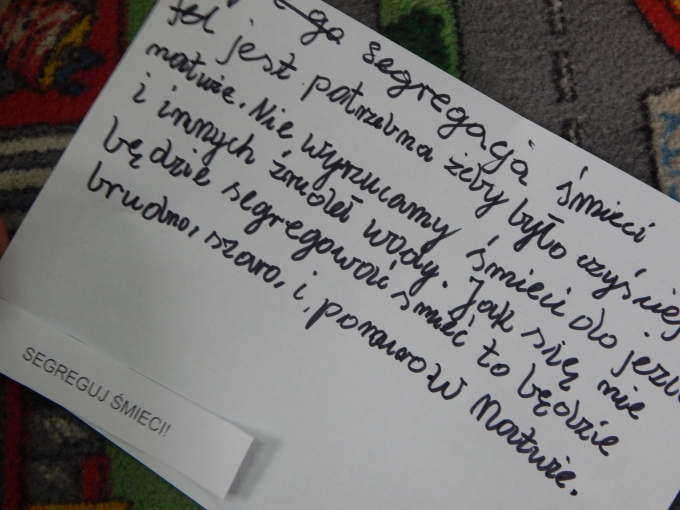 ga segregacja śmieci
jest potrzebna żeby było czyściej
naturze. Nie wyrzucamy śmieci do jezior
i innych źródeł wody. Jak się nie
będzie segregować śmieć to będzie
brudno, szaro, i ponuro w Naturze.
SEGREGUJ ŚMIECI!